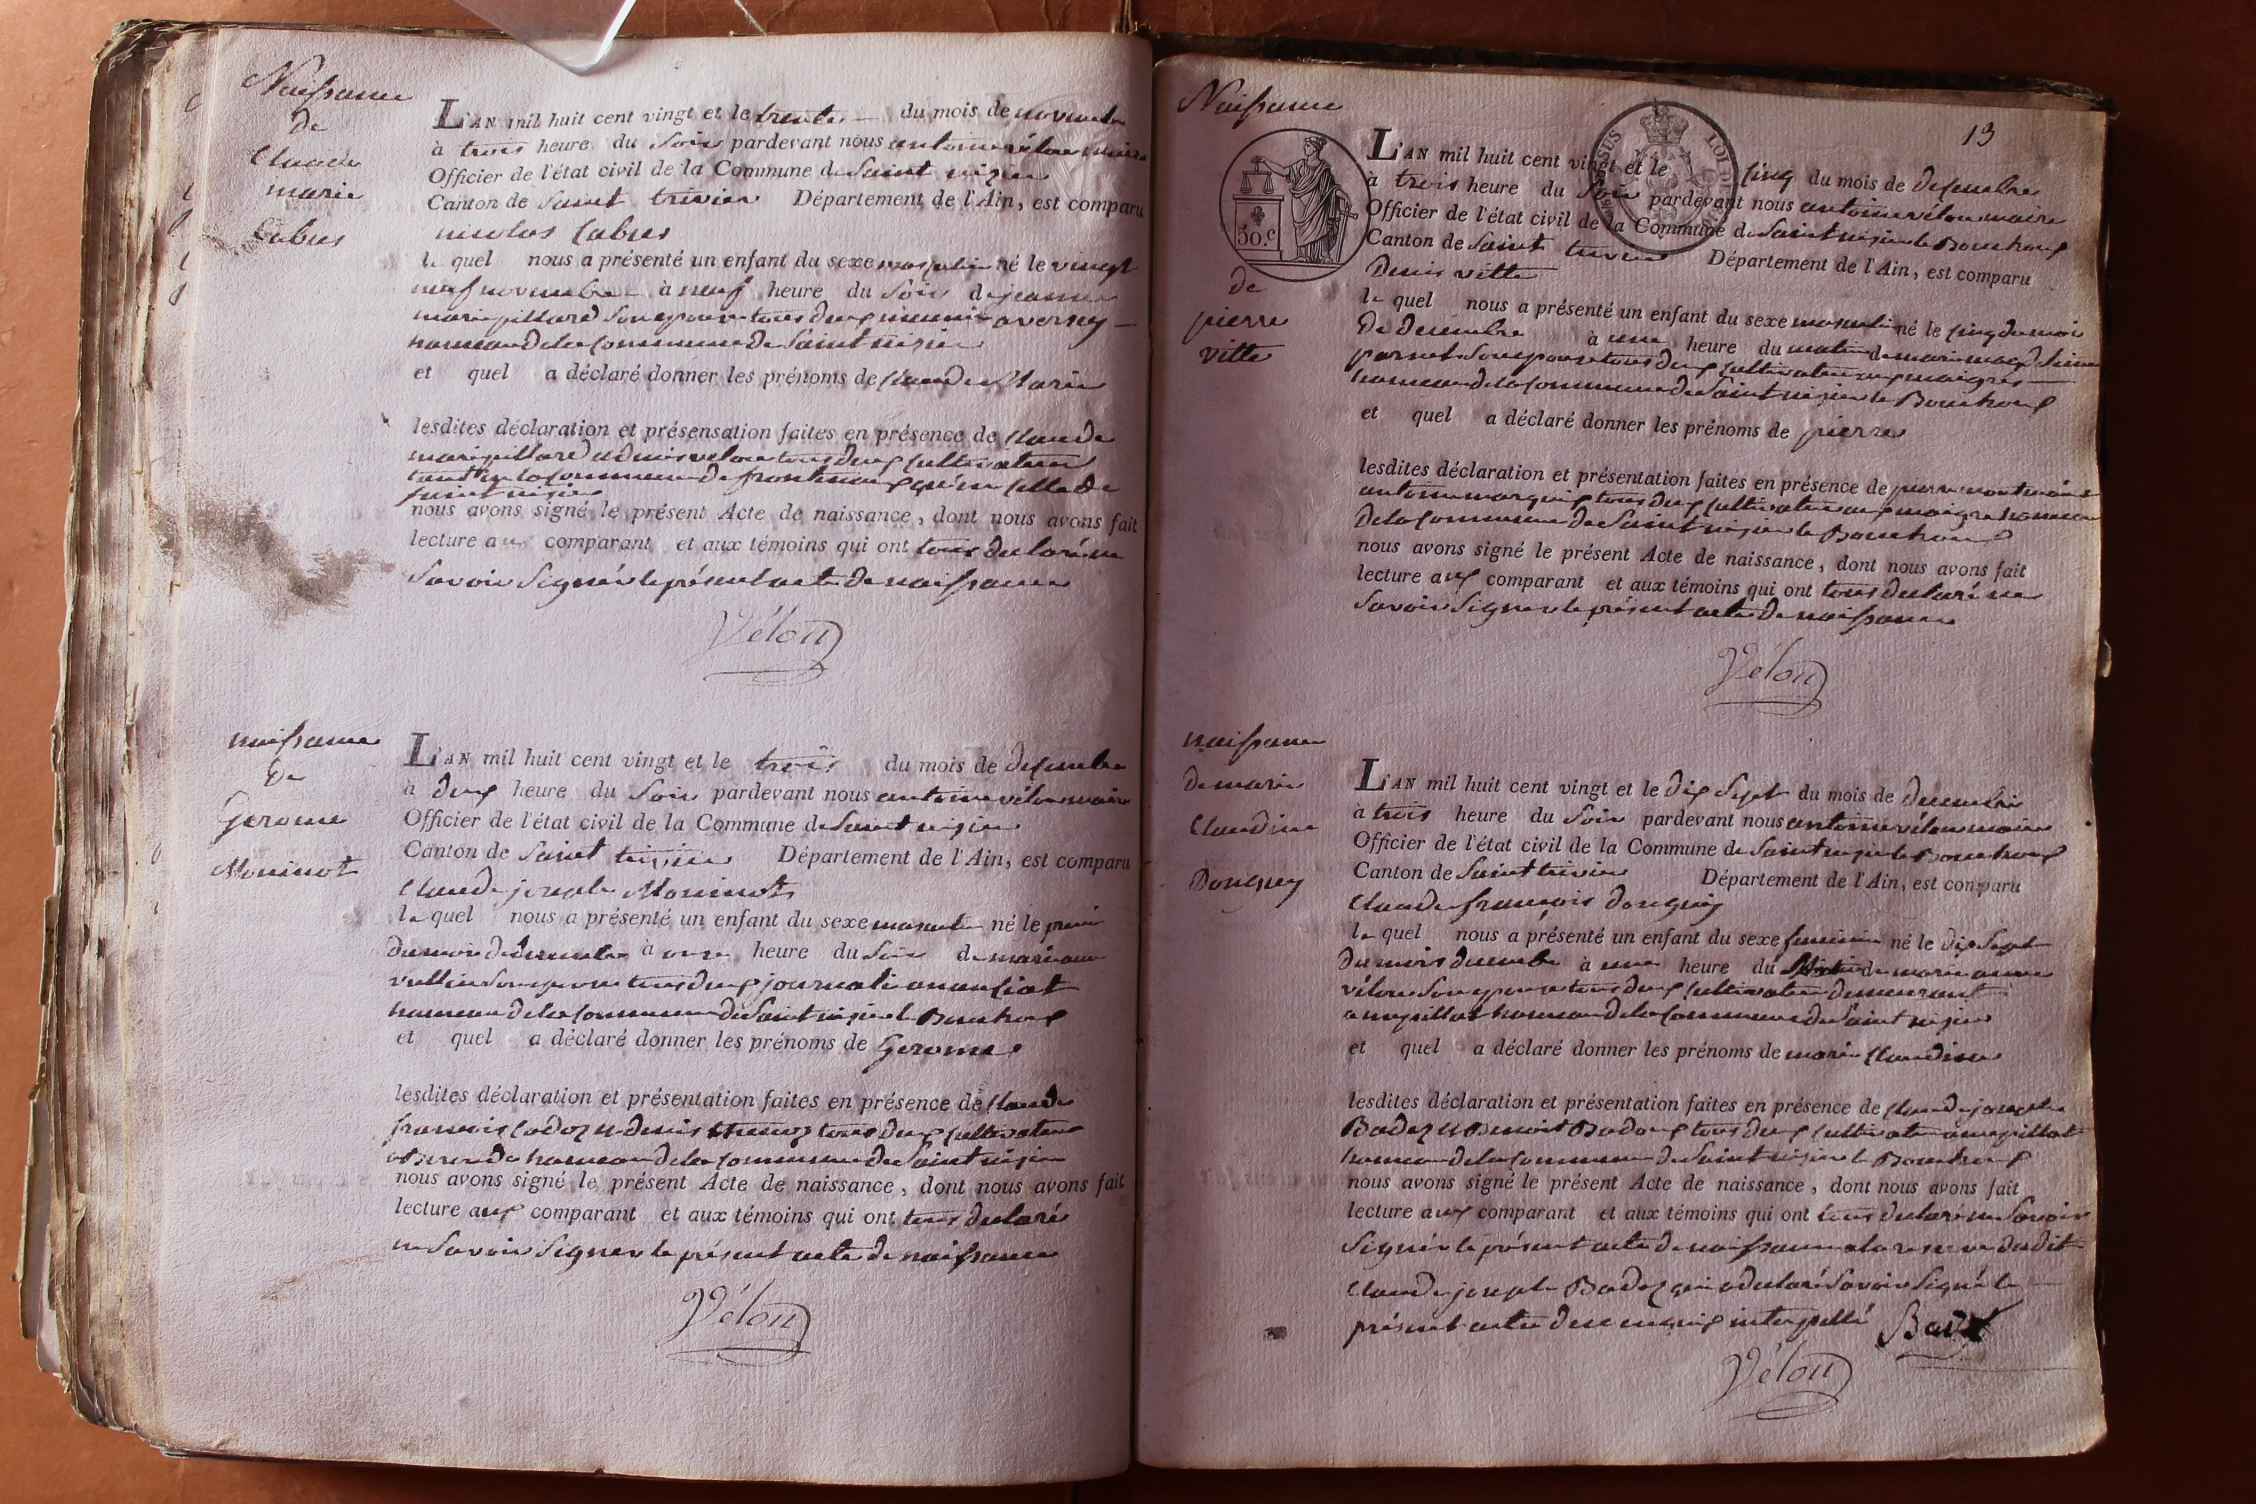 Naissance
de
Claude
marie
Cabus
L'AN mil huit cent vingt et le trente du mois de novembre
à trois heure du Soir pardevant nous antoine vélon maire
Officier de l'état civil de la Commune de Saint nizier
Canton de Saint trivier Département de l'Ain, est comparu
nicolas Cabus
le quel nous a présenté un enfant du sexe masculin né le vingt
neuf novembre à neuf heure du Soir de jeanne
marie pillard Son epouse tous deux a
hameau de la Commune de Saint nizier
et quel a déclaré donner les prénoms de Claude Marie
lesdites déclaration et présensation faites en présence de Claude
marie pillard et denis velon tous deux Cultivateur
tant en la Commune de frontenaux qu'en Celle de
Saint nizier
nous avons signé le présent Acte de naissance, dont nous avons fait
lecture aux comparant et aux témoins qui ont tous declaré ne
Savoir Signér le présent acte de naissance
Vélon
naissance
de
Gerome
Moninot
L'AN mil huit cent vingt et le trois du mois de decembre
à deux heure du Soir pardevant nous antoine vélon maire
Officier de l'état civil de la Commune de Saint nizier
Canton de Saint trivier Département de l'Ain, est comparu
Claude joseph Moninot
le quel nous a présenté un enfant du sexe masculin né le premier
du mois de decembre à onze heure du Soir de marie anne
vullin Son epouse tous deux journali
hameau de la Commune de Saint nizier le Bouchoux
et quel a déclaré donner les prénoms de Gerome
lesdites déclaration et présentation faites en présence de Claude
francois Cadoz et denis tous deux Cultivateur
hameau de la Commune de Saint nizier
nous avons signé le présent Acte de naissance, dont nous avons fait
lecture aux comparant et aux témoins qui ont tous declaré
ne Savoir Signer le présent acte de naissance
Vélon
13
Naissance
50.c
de
pierre
vitte
L'AN mil huit cent vingt et le Cinq du mois de decembre
à trois heure du Soir pardevant nous antoine vélon maire
Officier de l'état civil de la Commune de Saint nizier le Bouchoux
Canton de Saint trivier Département de l'Ain, est comparu
Denis vitte
le quel nous a présenté un enfant du sexe masculin né le Cinq du mois
de decembre à une heure du matin de marie
Son epouse tous deux Cultivateur aux maigres
hameau de la Commune de Saint nizier le Bouchoux
et quel a déclaré donner les prénoms de pierre
lesdites déclaration et présentation faites en présence de pierre
antoine marguin tous deux Cultivateur aux maigres hameau
de la Commune de Saint nizier le Bouchoux
nous avons signé le présent Acte de naissance, dont nous avons fait
lecture aux comparant et aux témoins qui ont tous declaré ne
Savoir Signer le présent acte de naissance
Vélon
naissance
de marie
Claudine
Donguy
L'AN mil huit cent vingt et le dix Sept du mois de decembre
à trois heure du Soir pardevant nous antoine vélon maire
Officier de l'état civil de la Commune de Saint nizier le Bouchoux
Canton de Saint trivier Département de l'Ain, est comparu
Claude francois donguy
le quel nous a présenté un enfant du sexe feminin né le dix Sept
du mois decembre à une heure du matin de marie anne
vélon Son epouse tous deux Cultivateur demeurant
hameau de la Commune de Saint nizier
et quel a déclaré donner les prénoms de marie Claudine
lesdites déclaration et présentation faites en présence de Claude joseph
Badoz et Benoit Badoux tous deux Cultivateur
hameau de la Commune de Saint nizier le Bouchoux
nous avons signé le présent Acte de naissance, dont nous avons fait
lecture aux comparant et aux témoins qui ont tous declaré ne Savoir
Signér le présent acte de naissance a la reserve dudit
Claude joseph Badoz qui a declaré Savoir Signé le
présent acte de ce enquis interpellé
Badoz
Vélon